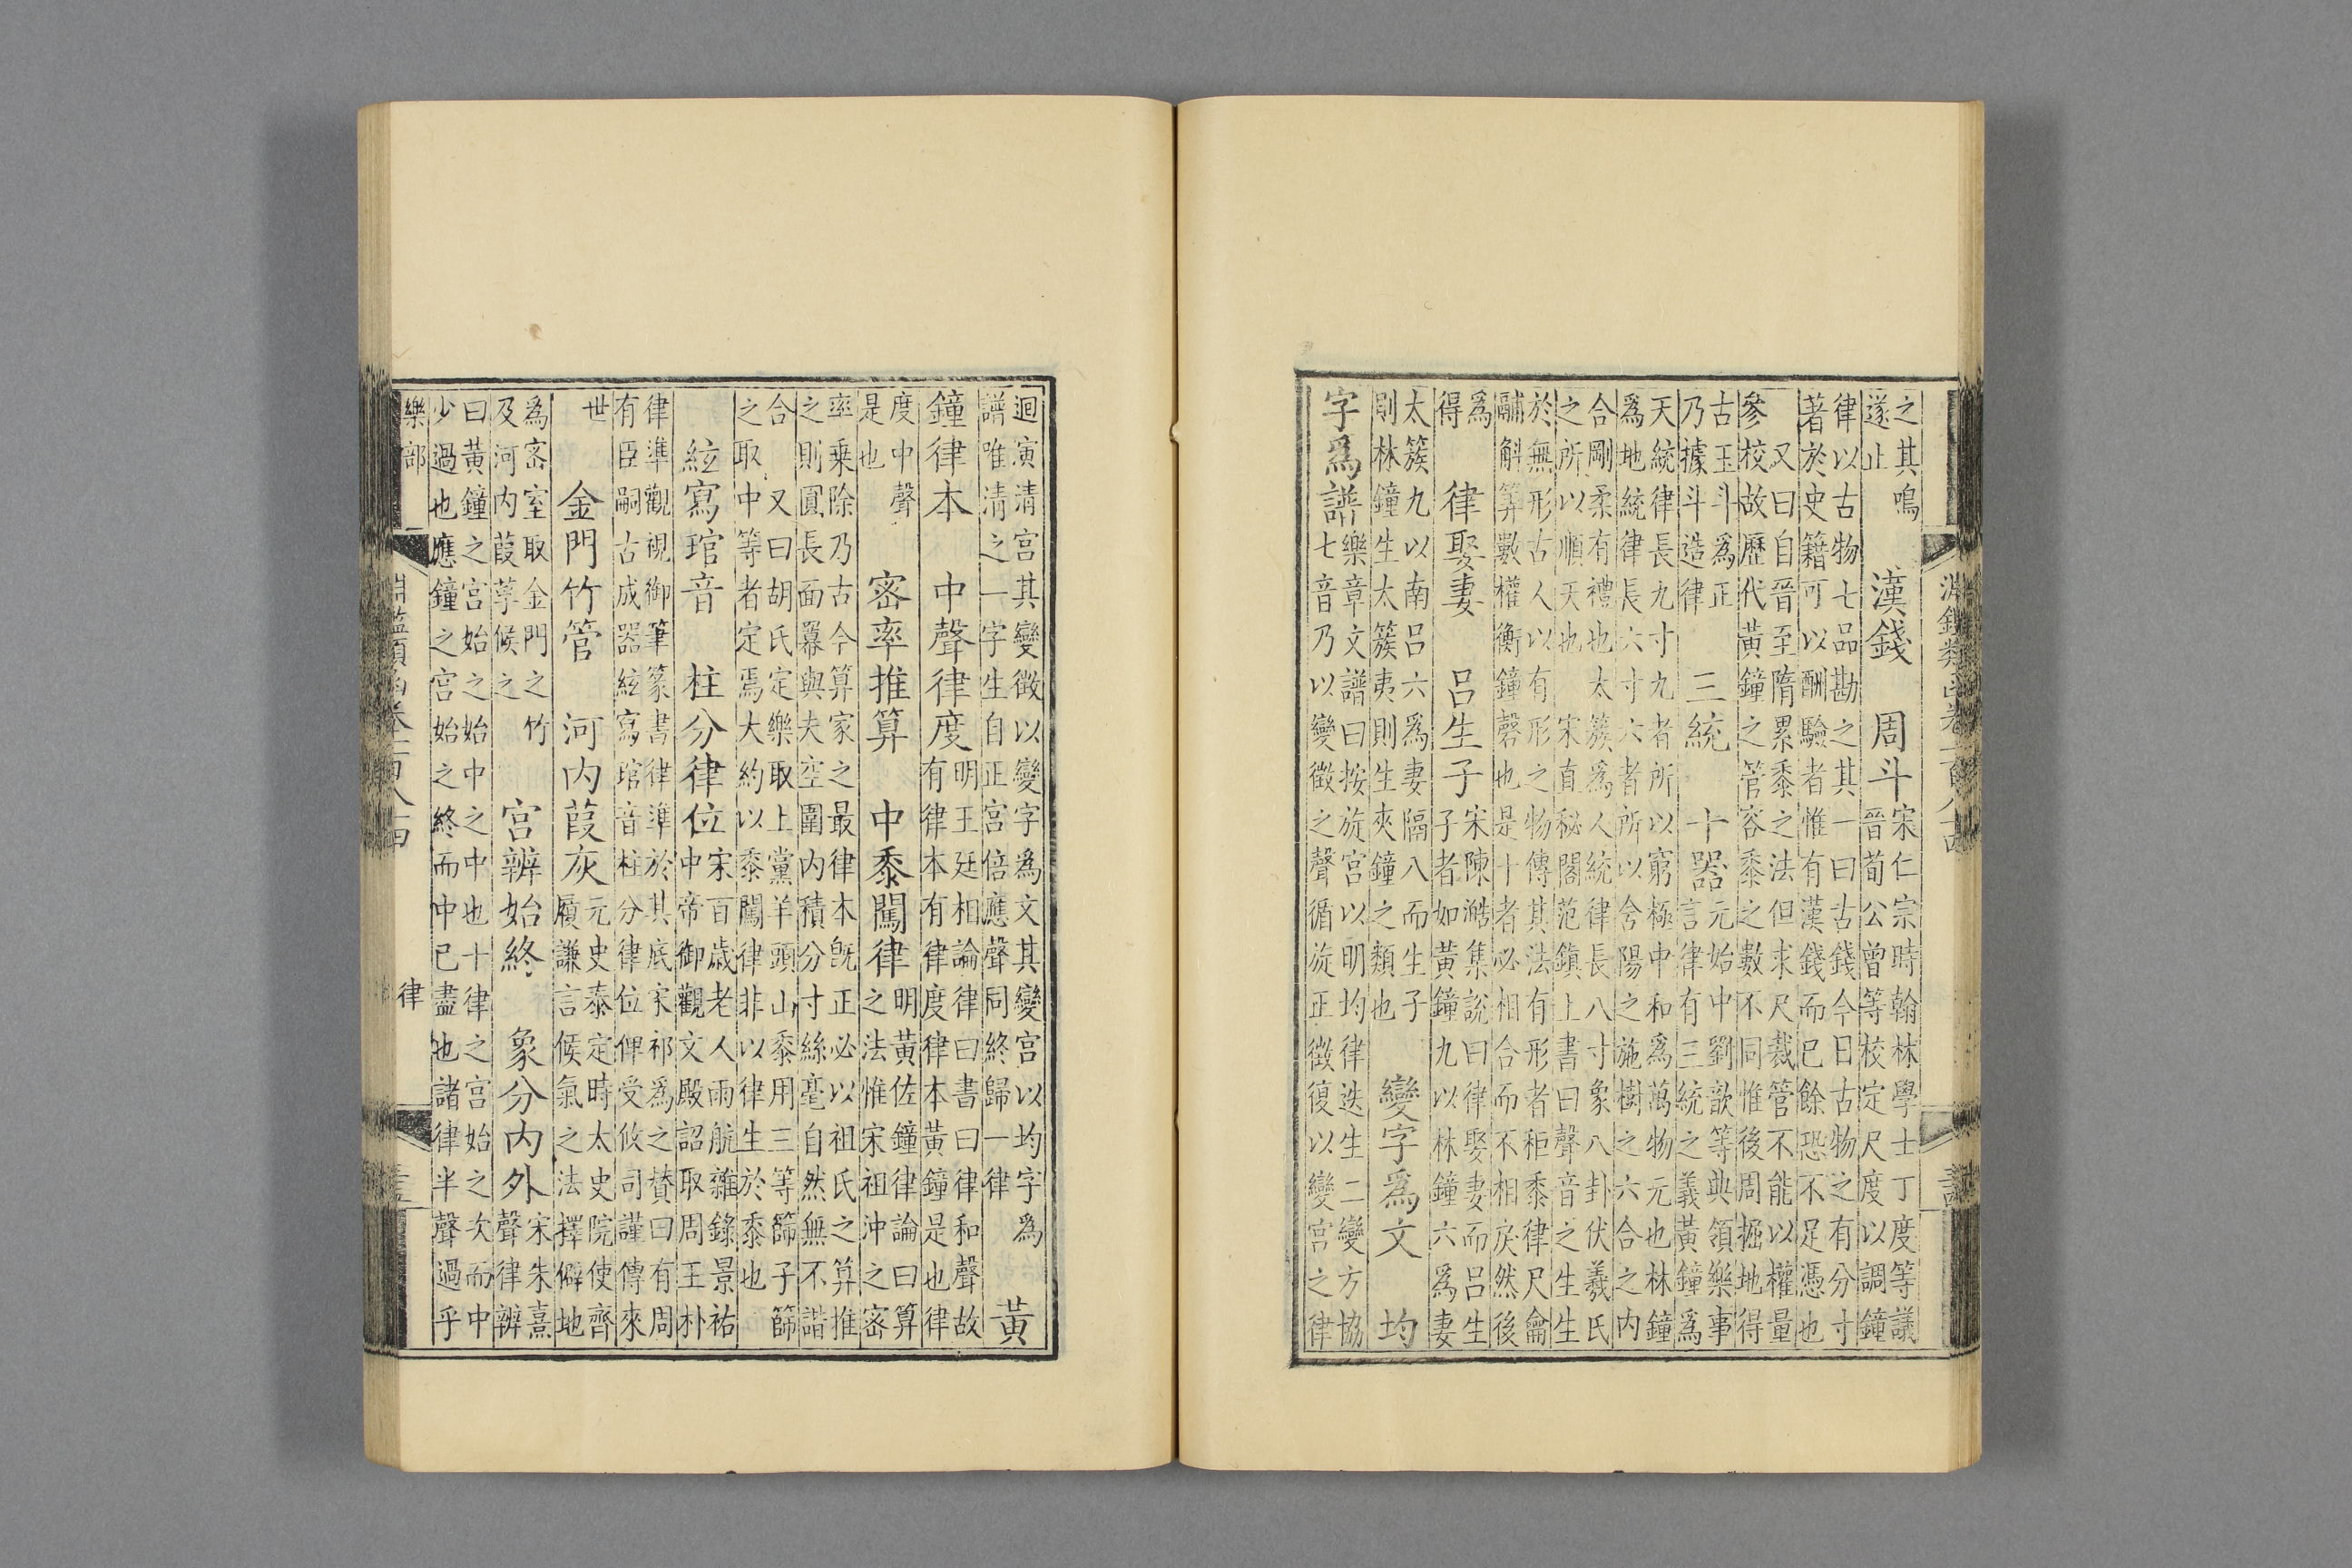 淵鑑類函卷一百八十四
之其鳴
遂止
漢錢　周斗
宋仁宗時翰林學士丁度等議
晉荀公曾等校定尺度以調鐘
律以古物七品勘之其一曰古錢今日古物之有分寸
著於史籍可以酬驗者惟有漢錢而已餘恐不足憑也
又曰自晉至隋累黍之法但求尺裁管不能以權量
參校故歷代黃鐘之管容黍之數不同惟後周掘地得
古玉斗爲正
乃據斗造律
三統　十器
元始中劉歆等典領樂事
言律有三統之義黃鐘爲
天統律長九寸九者所以窮極中和爲萬物元也林鐘
爲地統律長六寸六者所以含陽之施樹之六合之内
合剛柔有禮也　太簇爲人統律長八寸象八卦伏羲氏
之所以順天也　宋直秘閣范鎮上書曰聲音之生生
於無形古人以有形之物傳其法有形者秬黍律尺龠
鬴斛算數權衡鐘磬也是十者必相合而不相戾然後
爲
得
律娶妻　呂生子
宋陳澔集説曰律娶妻而呂生
子者如黃鐘九以林鐘六爲妻
太簇九以南呂六爲妻隔八而生子
則林鐘生太簇夷則生夾鐘之類也
變字爲文　均
字爲譜
樂章文譜曰按旋宮以明均律迭生二變方協
七音乃以變徵之聲循旋正徵復以變宮之律
迴寅清宮其變徵以變字爲文其變宮以均字爲
譜唯清之一字生自正宮倍應聲同終歸一律
黃
鐘律本　中聲律度
明王廷相論律曰書曰律和聲故
有律本有律度律本黃鐘是也律
度中聲
是也
密率推算　中黍闖律
明黃佐鐘律論曰算
之法惟宋祖沖之密
率乘除乃古今算家之最律本既正必以祖氏之算推
之則圓長面冪與夫空圍内積分寸絲毫自然無不諧
合　又曰胡氏定樂取上黨羊頭山黍用三等篩子篩
之取中等者定焉大約以黍闖律非以律生於黍也
絃寫琯音　柱分律位
宋百歳老人雨航雜錄景祐
中帝御觀文殿詔取周王朴
律準觀視御筆篆書律準於其底宋祁爲之贊曰有周
有臣嗣古成器絃寫琯音柱分律位俾受攸司謹傳來
世
金門竹管　河内葭灰
元史泰定時太史院使齊
履謙言候氣之法擇僻地
爲密室取金門之竹
及河内葭莩候之
宮辨始終　象分内外
宋朱熹
聲律辨
曰黃鐘之宮始之始中之中也十律之宮始之次而中
少過也應鐘之宮始之終而中已盡也諸律半聲過乎
樂部
淵鑑類函卷一百八十四
律